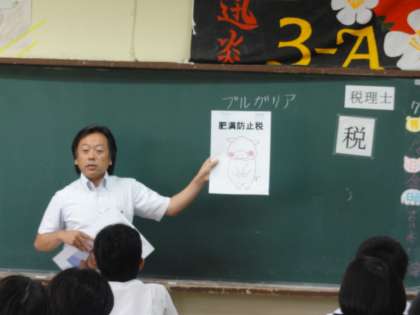 迅炎
3-A
ブルガリア
肥満防止税
税理士
税